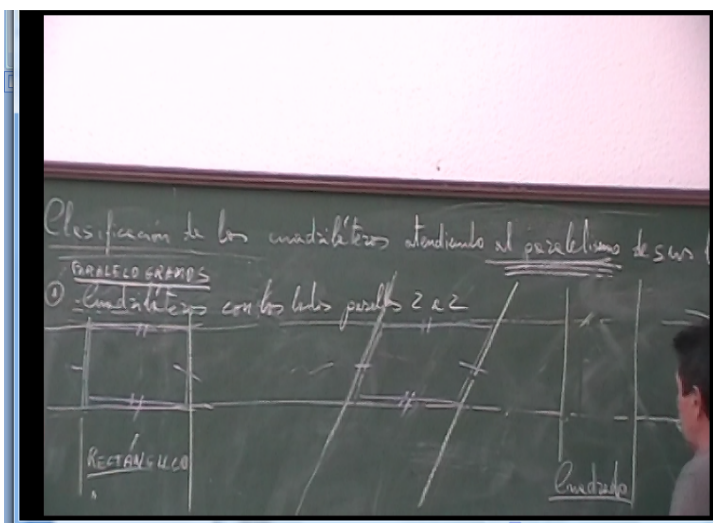 Clasificación de los cuadriláteros atendiendo al paralelismo de sus
PARALELOGRAMOS
① Cuadriláteros con los lados paralelos 2 a 2
RECTÁNGULO
Cuadrado